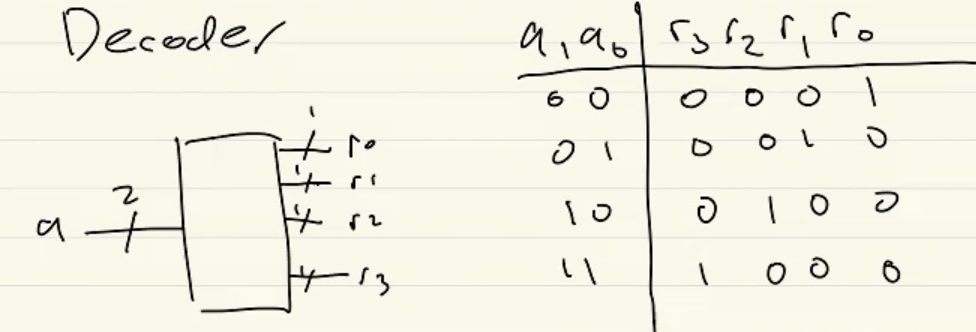 Decoder
a 2
1 r0
1 r1
1 r2
1 r3
a1 a0 r3 r2 r1 r0
0 0 0 0 0 1
0 1 0 0 1 0
1 0 0 1 0 0
1 1 1 0 0 0